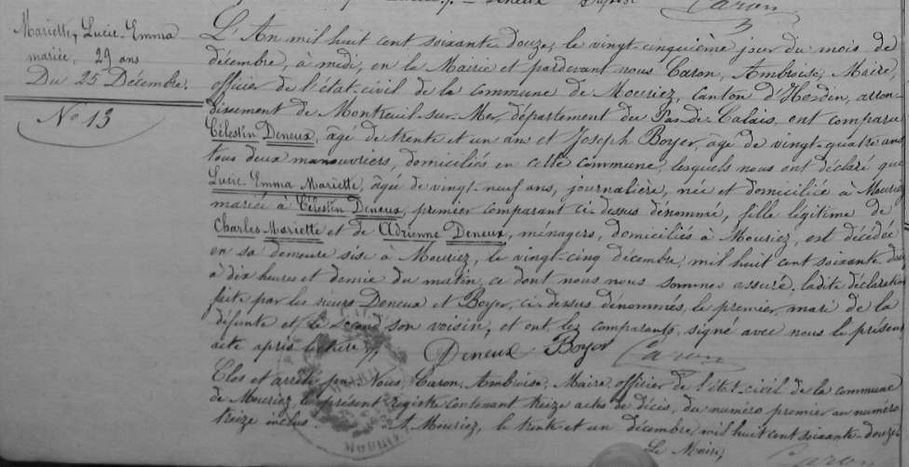 Mariette, Lucie-Emma
mariée, 29 ans
Du 25 Décembre.
N° 13
Caron
L'An mil huit cent soixante douze, le vingt-cinquième jour du mois de
décembre, à midi, en la Mairie et pardevant nous Caron, Ambroise, Maire,
officier de l'état-civil de la commune de Mouriez, canton d'Hesdin, arron-
dissement de Montreuil-sur-Mer, département du Pas-de-Calais, ont comparu
Célestin Deneux, âgé de trente et un ans et Joseph Boyer, âgé de vingt-quatre ans
tous deux manouvriers, domiciliés en cette commune, lesquels nous ont déclaré que
Lucie-Emma Mariette, âgée de vingt-neuf ans, journalière, née et domiciliée à Mouriez
mariée à Célestin Deneux, premier comparant ci-dessus dénommé, fille légitime de
Charles Mariette et de Adrienne Deneux, ménagers, domiciliés à Mouriez, est décédée
en sa demeure sise à Mouriez, le vingt-cinq décembre, mil huit cent soixante douze
à dix heures et demie du matin, ce dont nous nous sommes assuré. ladite déclaration
faite par les sieurs Deneux et Boyer, ci-dessus dénommés, le premier, mari de la
défunte et le second son voisin, et ont les comparants, signé avec nous le présent
acte après lecture.
Deneux Boyer Caron
Clos et arrêté par Nous, Caron, Ambroise, Maire, officier de l'état-civil de la commune
de Mouriez, le présent registre contenant treize actes de décès, du numéro premier au numéro
treize inclus. A Mouriez, le trente et un décembre mil huit cent soixante-douze.
Le Maire,
Caron